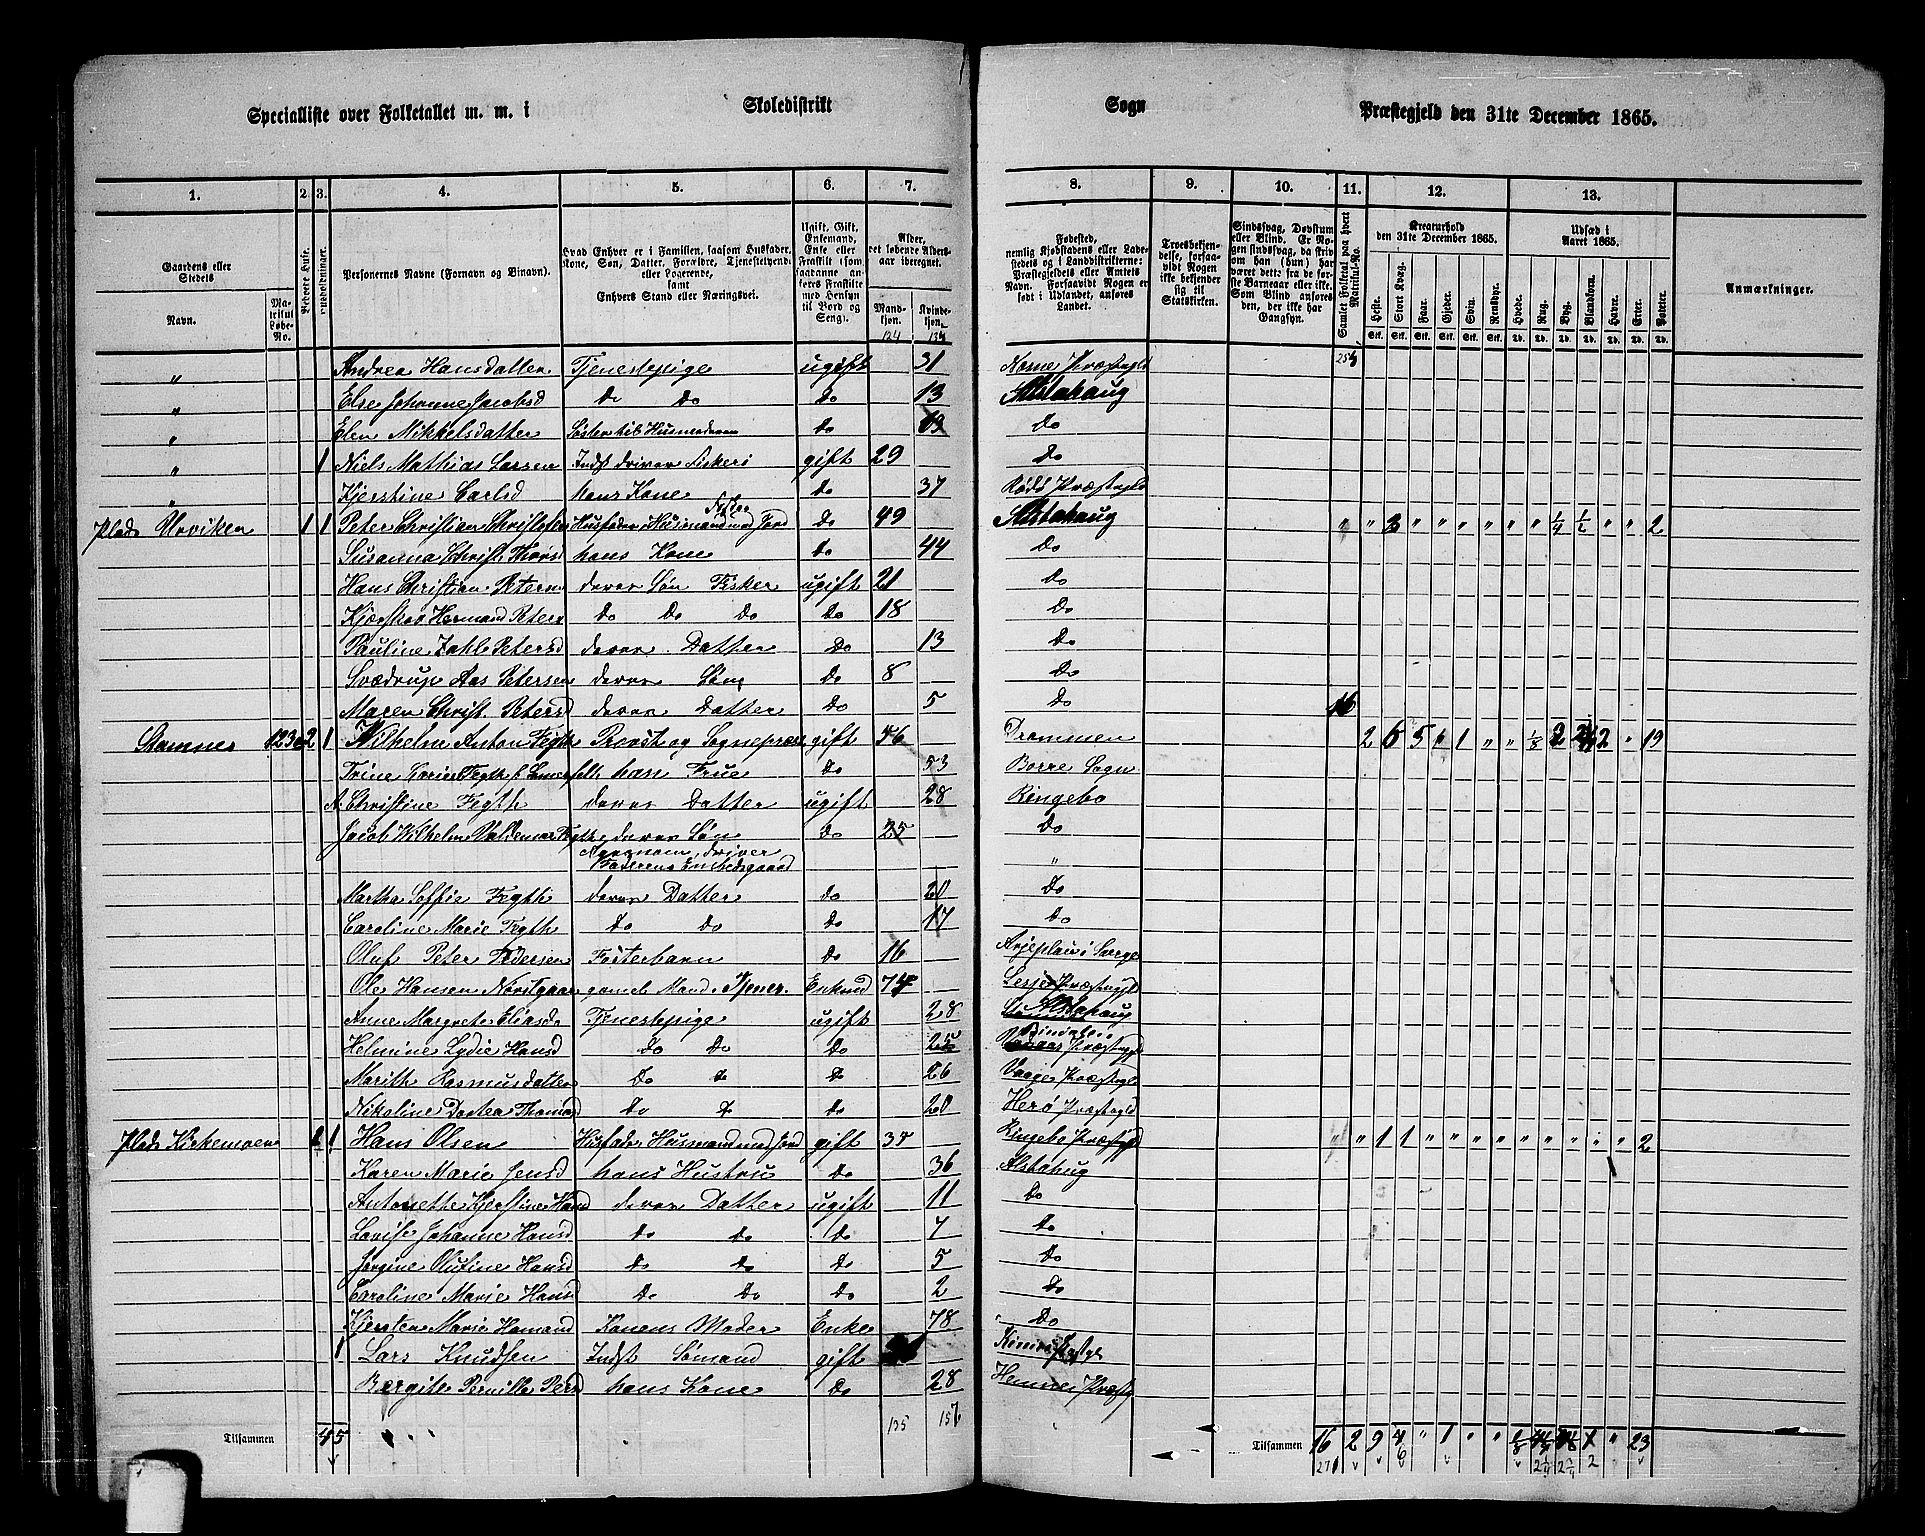 Specialliste over Folketallet m. m. i Skoledistrikt Sogn Præstegjeld den 31te December 1865.
1. 2. 3. 4. 5. 6. 7. 8. 9. 10. 11. 12. 13.
Gaardens eller Stedets Navn. Matrikul Løbe-No. Personernes Navne (Fornavn og Binavn).
Hvad Enhver er i Familien, saasom Husfader, Kone, Søn, Datter, Forældre, Tjenestetyende eller Logerende, samt Enhvers Stand eller Næringsvei.
Ugift, Gift, Enkemand, Enke eller Fraskilt (som saadanne anføres Fraskilte med Hensyn til Bord og Seng).
Alder, det løbende Alders-aar iberegnet. Mandkjøn. Kvindekjøn.
Fødested, nemlig Kjøbstadens eller Ladestedets og i Landdistrikterne: Præstegjeldets eller Amtets Navn. Forsaavidt Nogen er født i Udlandet, anføres Landet.
Troesbekjendelse, forsaavidt Nogen ikke bekjender sig til Statskirken.
Sindssvag, Døvstum eller Blind. Er Nogen sindssvag, da skrives om han (hun) har været det: fra de første Barneaar eller ikke. Som Blind anføres den, der ikke har Gangsyn.
Samlet Folketal paa hvert Matrikul-No.
Kreaturhold den 31te December 1865. Heste. Stort Kvæg. Faar. Gjeder. Svin. Rensdyr.
Udsæd i Aaret 1865. Hvede. Rug. Byg. Blandkorn. Havre. Erter. Poteter.
Anmærkninger.
124
" Andrea Hansdatter Tjenestepige ugift 31 Nesne Præstegjld
" Else Johanne Jacobsd Do Do Do 13 Alstahaug
" Elen Mikkelsdatter Søster til Husmoderen Do Do
" 1 Niels Mathias Larsen Inds driver Fiskeri gift 29 Do
" Kjerstine Carlsd hans Kone Do 37 Rødø Præstegjld
Plads Urviken 1 1 Peter Christian Christofersen Husfader Husmand med Jord Do 49 Alstahaug " " 3 " " " " " " 1/4 1/2 " " 2
Susanna Christ Thorsd hans Kone Do 44 Do
Hans Christian Petersen deres Søn Fisker ugift 21 Do
Kjerschov Hermand Peters Do Do Do Do 18 Do
Pauline Zahl Petersd deres Datter Do 13 Do
Sverdrup Aas Petersen deres Søn Do 8 Do
Maren Christ. Petersd deres Datter Do 5 Do 16
Stamnes 123 2 1 Wilhelm Anton Fegth Provst og Sognepræst gift 56 Drammen 2 6 5 1 " " 1/8 2 2 " 19
Trine Lovise Fegth f. hans Frue Do 53 Borre Sogn
A. Christine Fegth deres Datter ugift 28 Ringebo
Jacob Wilhelm Valdemar Fegth deres Søn Do 25 Do
Agronom, driver Faderens Embedsgaard "
Martha Soffie Fegth deres Datter do 20 Do
Caroline Marie Fegth Do Do Do 17 Do
Oluf Peter Pedersen Fosterbarn Do 16 Arjeplau i Sverge
Ole Hansen Norstgaar gamel Mand. Tjener. Enkmd 74 Lesje Præstegjld
Anne Margrete Eliasd Tjenestepige ugift 28 Alstahaug
Helmine Lydie Hansd Do Do Do 25 Bindalen Præstegjld
Marith Rasmusdatter Do Do Do 26 Vaage Præstegjld
Nikoline Dortea Thomasd Do Do Do 20 Herø Præstegjld
Plads Kirkemoen 1 1 Hans Olsen Husfader Husmand med Jord gift 35 Ringebo Præstgjld " " 1 1 " " " " " " " " " 2
Karen Marie Jensd hans Hustru Do 36 Alstahug
Antonette Kjerstine Hansd deres Datter ugift 11 Do
Lovise Johanne Hansd Do Do Do 7 Do
Jorgine Olufine Hansd Do Do Do 5 Do
Caroline Marie Hansd Do Do Do 2 Do
Kjersten Marie Hemand Konens Moder Enke 78 Do
1 Lars Knudsen Indst Sømand gift
Bergite Pernille Persd hans Kone Do 28 Hemnes Præstg
135 157
Tilsammen 4 5 Tilsammen 16 2 9 " 1 " " 1/8 " 23
271 6 2 1/4 2 3/4 2